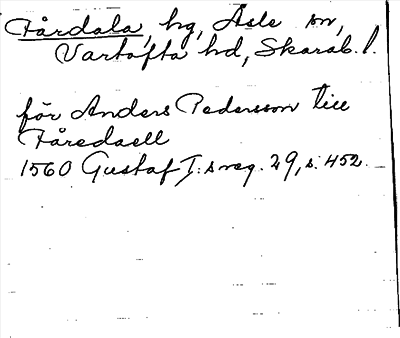 Fårdala, hg, Åsle sn,
Vartofta hd, Skarab. l.
för Anders Pedersson till
Fåredaell
1560 Gustaf I:s reg. 29, s. 452.